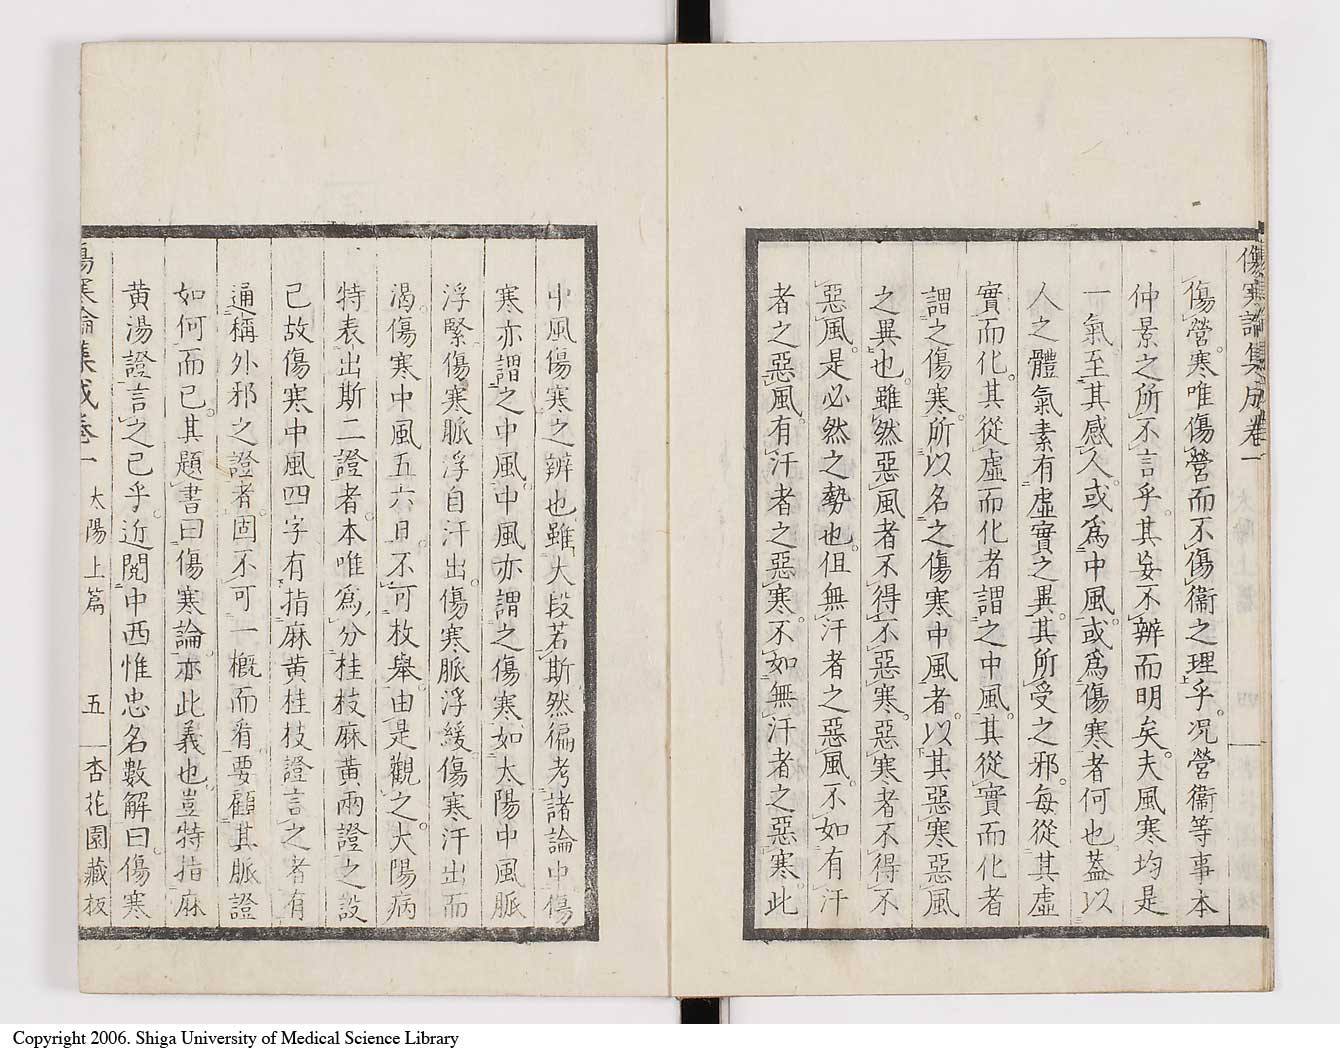 傷寒論集成卷一
傷營寒唯傷營而不傷衞之理乎況營衞等事本
仲景之所不言乎其妄不辨而明矣夫風寒均是
一氣至其感人或爲中風或爲傷寒者何也蓋以
人之體氣素有虛實之異其所受之邪每從其虛
實而化其從虛而化者謂之中風其從實而化者
謂之傷寒所以名之傷寒中風者以其惡寒惡風
之異也雖然惡風者不得不惡寒惡寒者不得不
惡風是必然之勢也但無汗者之惡風不如有汗
者之惡風有汗者之惡寒不如無汗者之惡寒此
中風傷寒之辨也雖大段若斯然徧考諸論中傷
寒亦謂之中風中風亦謂之傷寒如太陽中風脈
浮緊傷寒脈浮自汗出傷寒脈浮緩傷寒汗出而
渴傷寒中風五六日不可枚舉由是觀之大陽病
特表出斯二證者本唯爲分桂枝麻黃兩證之設
已故傷寒中風四字有指麻黃桂枝證言之者有
通稱外邪之證者固不可一概而看要顧其脈證
如何而已其題書曰傷寒論亦此義也豈特指麻
黃湯證言之已乎近閱中西惟忠名數解曰傷寒
傷寒論集成卷一 太陽上篇 五 杏花園藏板
Copyright 2006. Shiga University of Medical Science Library